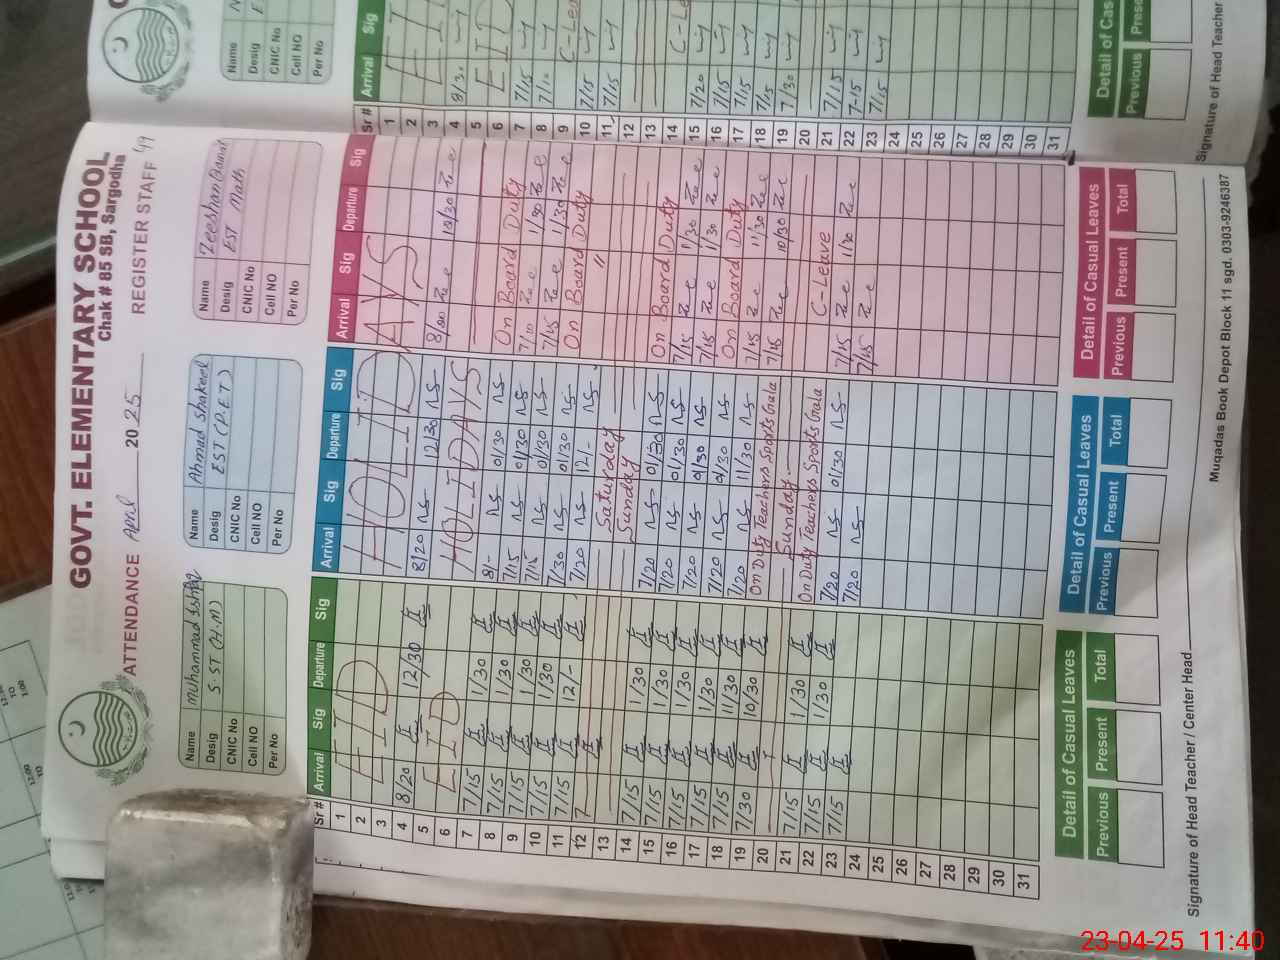 GOVT. ELEMENTARY SCHOOL
Chak # 85 SB, Sargodha
ATTENDANCE April 2025 REGISTER STAFF
Name muhammad Ishaq
Desig S.ST (H.M)
CNIC No
Cell NO
Per No
Name Ahmad Shakeel
Desig EST (P.E.T)
CNIC No
Cell NO
Per No
Name Zeeshan
Desig EST Math
CNIC No
Cell NO
Per No
Sr # Arrival Sig Departure Sig Arrival Sig Departure Sig Arrival Sig Departure Sig
1
2 EID HOLIDAYS
3
4 8/20 12/30 8/20 12/30 8/00 10/30
5
6 EID HOLIDAYS
7 7/15 1/30 8/- 01/30 On Board Duty
8 7/15 1/30 7/15 01/30 7/10 1/30
9 7/15 1/30 7/15 01/30 7/15 1/30
10 7/15 1/30 7/30 01/30 On Board Duty
11 7/15 12/- 7/20 12/- "
12 7 Saturday
13 Sunday
14 7/15 1/30 7/20 01/30 On Board Duty
15 7/15 1/30 7/20 01/30 7/15 11/30
16 7/15 1/30 7/20 01/30 7/15 11/30
17 7/15 1/30 7/20 01/30 On Board Duty
18 7/15 11/30 7/20 11/30 7/15 11/30
19 7/30 10/30 On Duty Teachers Sports Gala 7/15 10/30
20 Sunday
21 7/15 1/30 On Duty Teachers Sports Gala C-Leave
22 7/15 1/30 7/20 01/30 7/15 1/30
23 7/15 7/20 7/15
24
25
26
27
28
29
30
31
Detail of Casual Leaves
Previous Present Total
Detail of Casual Leaves
Previous Present Total
Detail of Casual Leaves
Previous Present Total
Signature of Head Teacher / Center Head
Muqadas Book Depot Block 11 sgd. 0303-9246387
Name
Desig
CNIC No
Cell NO
Per No
Sr # Arrival Sig
1
2
3
4 8/30
5
6
7 7/15
8 7/10
9 C-Lea
10 7/15
11 7/15
12
13
14 C-Le
15 7/20
16 7/15
17 7/15
18 7/15
19 7/30
20
21 7/15
22 7-15
23 7/15
24
25
26
27
28
29
30
31
Detail of Cas
Previous Prese
Signature of Head Teacher
23-04-25 11:40